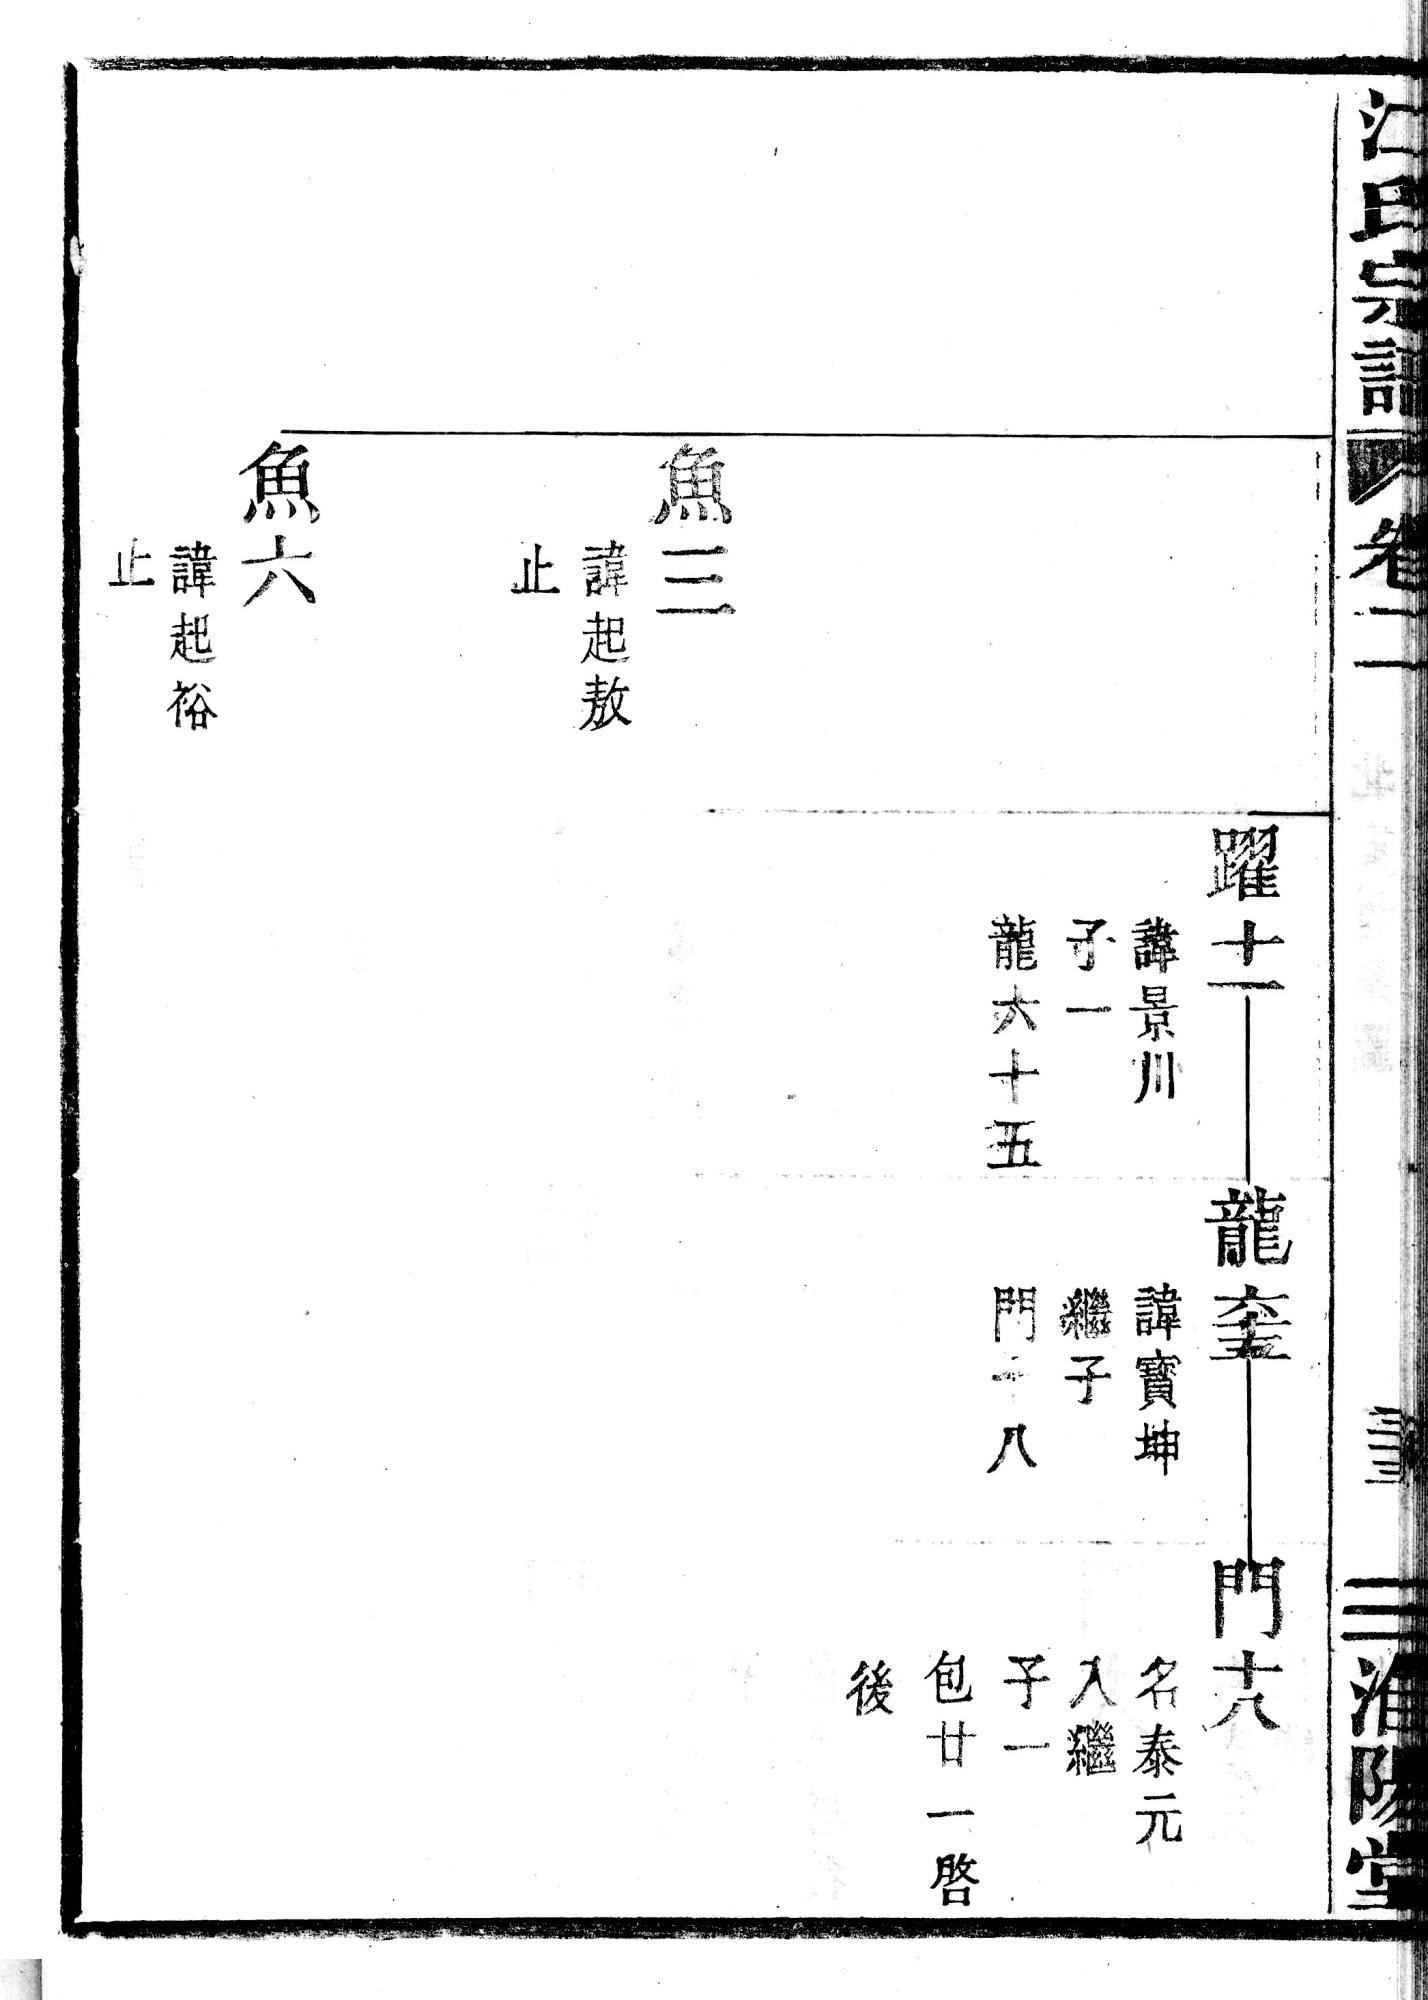 江氏宗譜 卷二 淮陽堂
躍十一
諱景川
子一
龍六十五
龍六十五
諱寶坤
繼子
門十八
門十八
名泰元
入繼
子一
包廿一啓
後
魚三
諱起敖
止
魚六
諱起裕
止